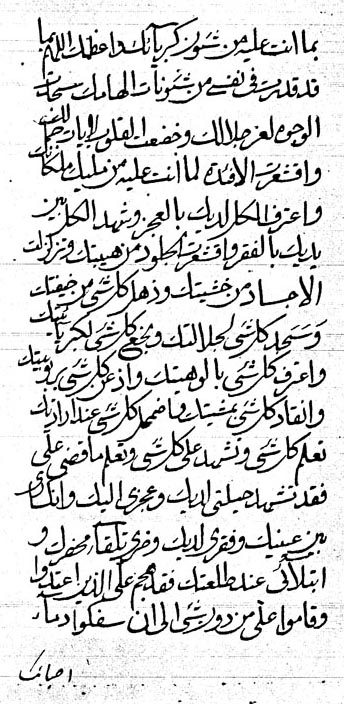 بما انت عليه من شئون كبريآئتك واعظمك اللهم بما
قد قدرت في نفسي من شئونات الهامك سجدت
الوجوه لعز جلالك وخضعت القلوب لايات رحمانيتك
واقشعرت الافئدة لما انت عليه من مليك ملكانيتك
واعترف الكل لديك بالعجز وشهد الكل بين
يديك بالفقر واقشعرت الجلود من هيبتك وتزلزلت
الاجساد من خشيتك وذهل كلشئ من خيفتك
وسجد كلشئ لجلالتك وبخع كلشئ لكبريآئيتك
واعترف كلشئ بالوهيتك واذعن كلشئ بربوبيتك
وانقاد كلشئ بمشيتك واضمحل كلشئ عند ارادتك
تعلم كلشئ وتشهد على كلشئ وتعلم ما قضى علي
فقد تشهد حيلتي لديك وعجزي اليك وانكساري
بين عينيك وفقري لديك وضري تلقآء محضرك و
ابتلائي عند طلعتك فقد هجم علي الذين اعتدوا
وقاموا علي من دون شئ الى ان سفكوا دمآء
احبائك